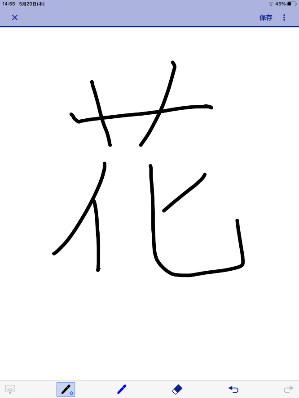 14:55 5月20日(木) 45%
保存
花